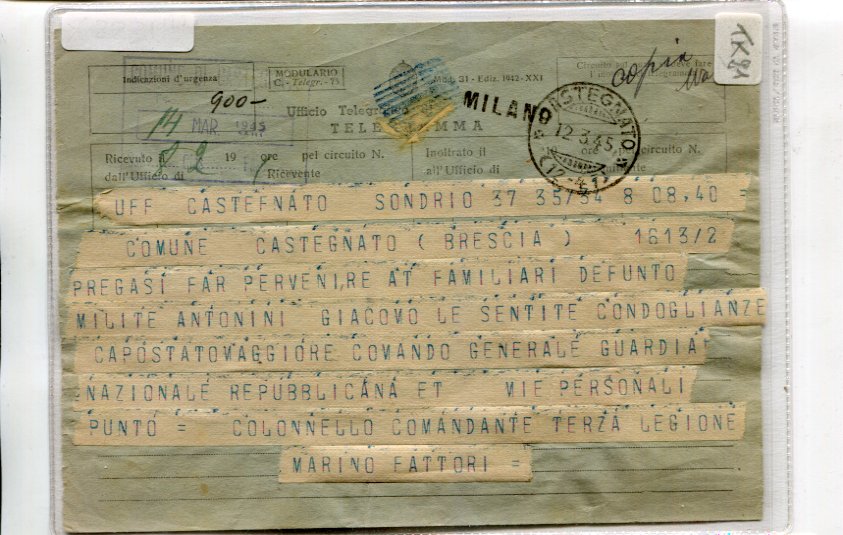 TK81
Indicazioni d'urgenza
MODULARIO
C. - Telegr. - 73
Mod. 31 - Ediz. 1942 - XXI
900-
copia
14 MAR. 1945
Ufficio Telegrafico
MILANO
CASTEGNATO
12.3.45
TELEGRAMMA
Ricevuto il 19 ore pel circuito N.
dall'Ufficio di Ricevente
Inoltrato il ore
all'Ufficio di
UFF CASTEFNATO SONDRIO 37 35/34 8 08,40 =
COMUNE CASTEGNATO ( BRESCIA ) 1613/2
PREGASI FAR PERVENIRE AT FAMILIARI DEFUNTO
MILITE ANTONINI GIACOMO LE SENTITE CONDOGLIANZE
CAPOSTATOMAGGIORE COMANDO GENERALE GUARDIA
NAZIONALE REPUBBLICANA ET MIE PERSONALI
PUNTO = COLONNELLO COMANDANTE TERZA LEGIONE
MARINO FATTORI =